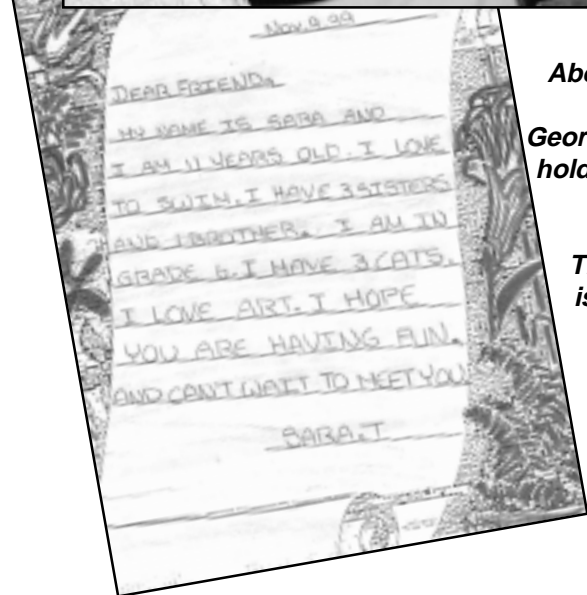 Nov. 9. 99
DEAR FRIEND,
MY NAME IS SARA AND
I AM 11 YEARS OLD. I LOVE
TO SWIM. I HAVE 3 SISTERS
AND 1 BROTHER. I AM IN
GRADE 6. I HAVE 3 CATS.
I LOVE ART. I HOPE
YOU ARE HAVING FUN.
AND CAN'T WAIT TO MEET YOU
SARA.T
Geor
hold